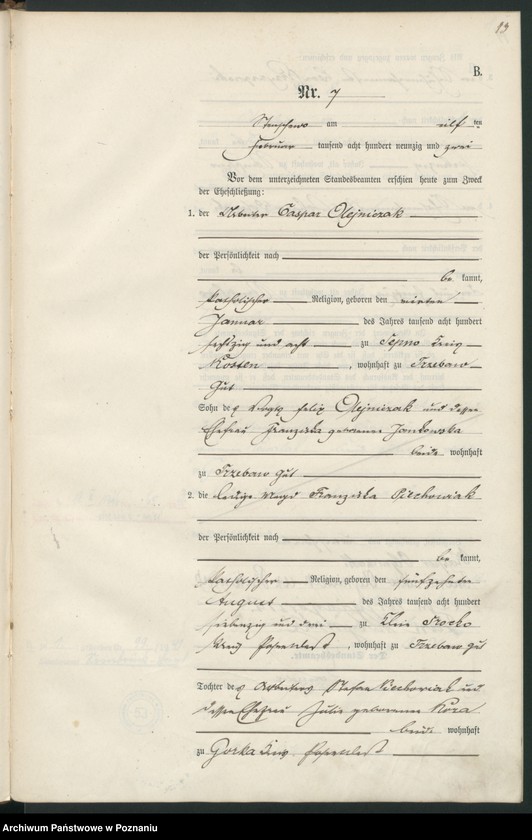 13
B.
Nr. 7
Stenschewo am eilf ten
Februar tausend acht hundert neunzig und zwei
Vor dem unterzeichneten Standesbeamten erschien heute zum Zweck
der Eheschließung:
1. der Arbeiter Caspar Olejniczak
der Persönlichkeit nach
be kannt,
katholischer Religion, geboren den vierten
Januar des Jahres tausend acht hundert
sechszig und acht zu Sepno Kreis
Kosten, wohnhaft zu Trzebaw
Gut
Sohn des Vogts Felix Olejniczak und dessen
Ehefrau Franziska geborenen Jankowska
beide wohnhaft
zu Trzebaw Gut
2. die ledige Magd Franziska Piechowiak
der Persönlichkeit nach
be kannt,
katholischer Religion, geboren den fünfzehnten
August des Jahres tausend acht hundert
siebenzig und drei zu Klein
Kreis Posen West, wohnhaft zu Trzebaw Gut
Tochter des Arbeiters Stefan Piechowiak und
dessen Ehefrau Julie geborenen Koza
beide wohnhaft
zu Gorka Kreis Posen West
Archiwum Państwowe w Poznaniu